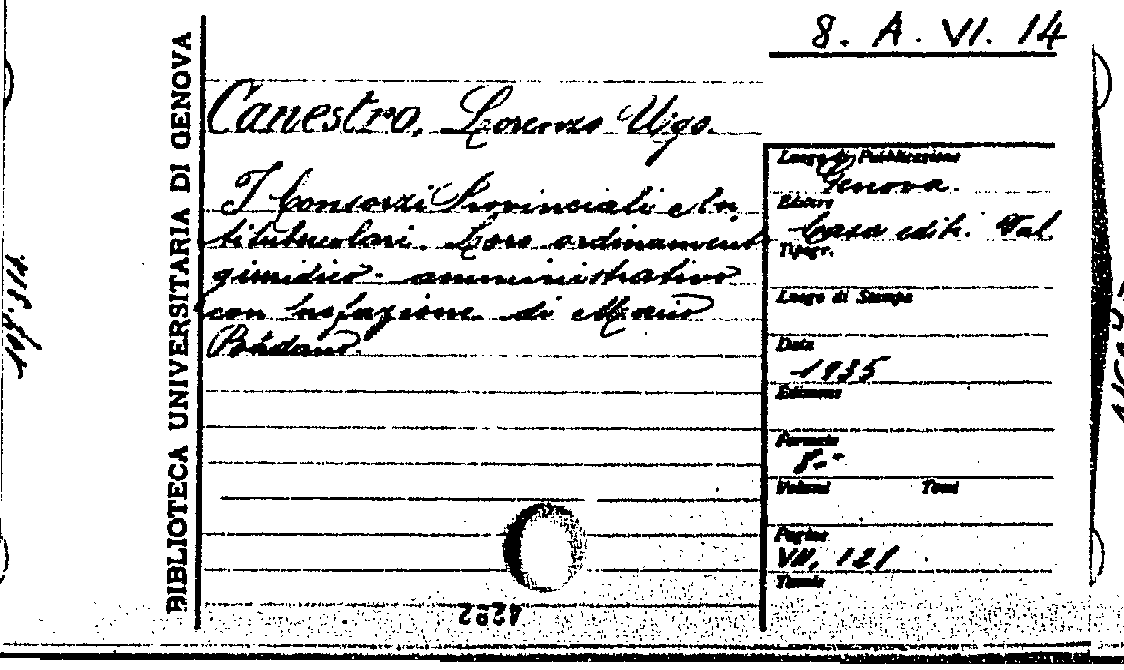 8. A. VI. 14
BIBLIOTECA UNIVERSITARIA DI GENOVA
Canestro, Lorenzo Ugo.
I Consorzi Provinciali e In
titubercolari. Loro ordinamento
giuridico - amministrativo
con prefazione di Mario
Luogo di Pubblicazione
Genova.
Editore
Casa edit.
Tipogr.
Luogo di Stampa
Data
1935
Edizione
Formato
8-°
Volumi Tomi
Pagine
VII, 121